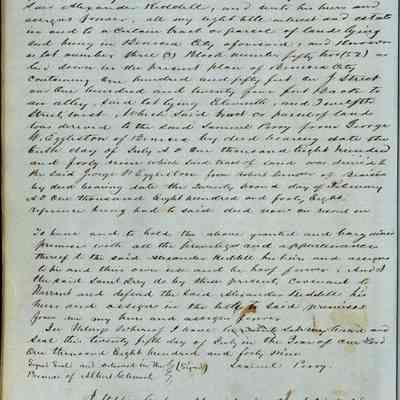 said Alexander Riddell, and unto his heirs and
assigns forever, all my right title interest and estate
in and to a certain tract or parcel of land lying
and being in Benicia City aforesaid, and known
as lot number three (3) Block number fifty
laid down in the present plan of Benicia City
Containing One hundred and fifty feet on J Street
and One hundred and twenty five feet back to
an alley, said lot lying Eleventh, and Twelfth
Streets west, Which said tract or parcel of land
was deeded to the said Samuel Perry from George
W. Eggleston of Benicia by deed bearing date the
day of July AD One thousand Eight hundred
and forty nine which said tract of land was deeded to
the said George W. Eggleston from Robert Semple of Benicia
by deed bearing date the Twenty second day of February
AD One thousand Eight hundred and forty Eight
reference being had to said deed now on record
To have and to hold the above granted and bargained
premises with all the privileges and appurtenances
thereof to the said Alexander Riddell his heirs and assigns
to his and their own use and behoof forever, And I
the said Saml Perry do by these presents, Covenant to
Warrant and defend the said Alexander Riddell his
heirs and assigns in the title to said premises
from me my heirs and assigns forever
In Witness Whereof I have hereunto set my hand and
Seal this twenty fifth day of July in the Year of our Lord
One thousand Eight hundred and forty Nine
Signed Seal and delivered in the (Signed) Samuel Perry
Presence of Albert